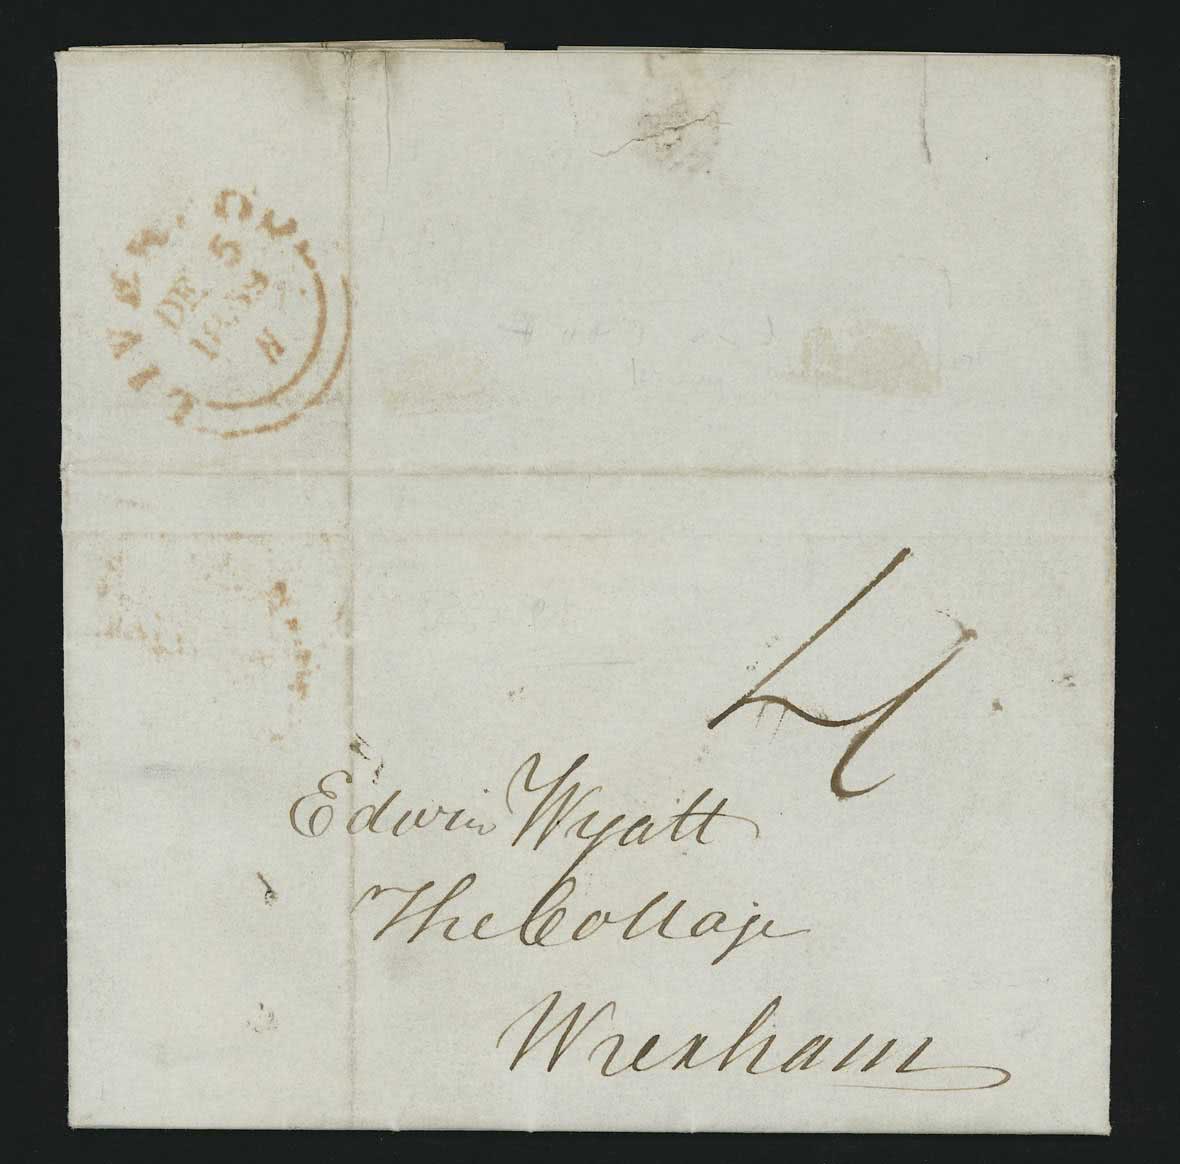 LIVERPOOL
DE 5
1839
N
4
Edwin Wyatt
The Cottage
Wrexham